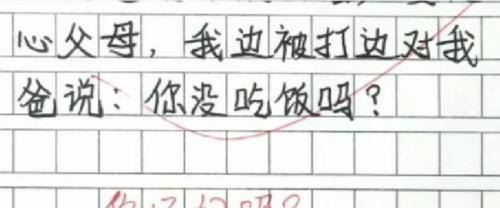 心父母，我边被打边对我
爸说：你没吃饭吗？